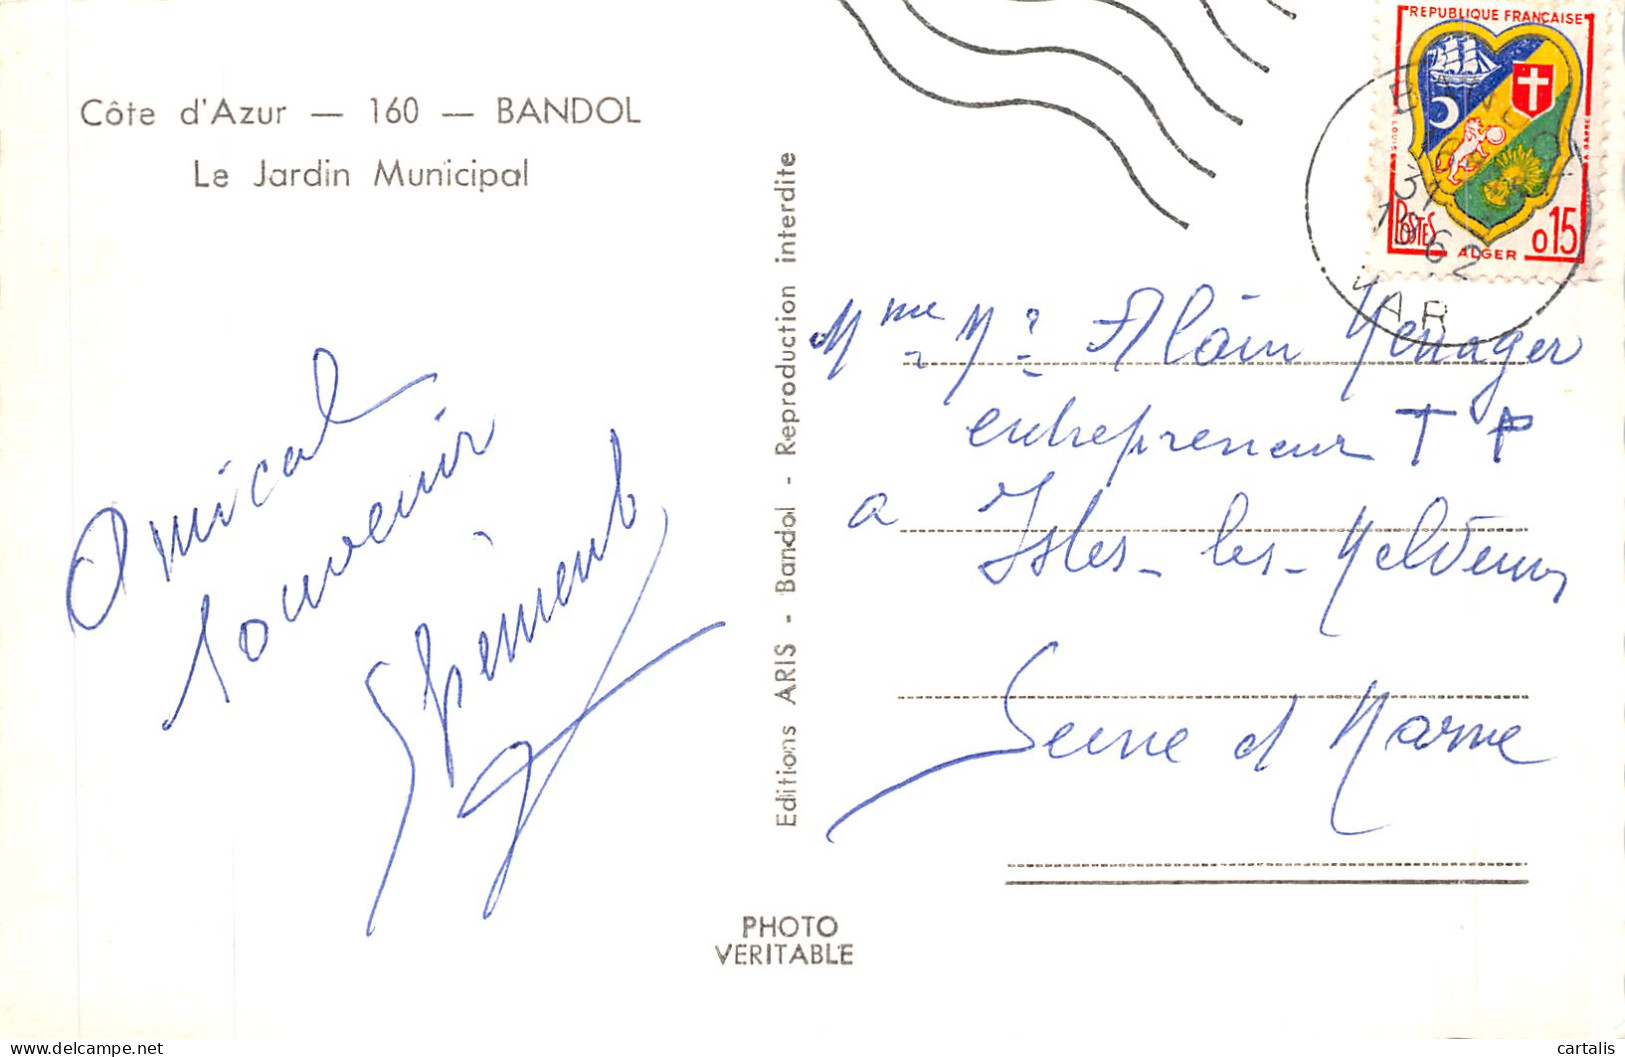 Côte d'Azur — 160 — BANDOL
Le Jardin Municipal
Amical
souvenir
Editions ARIS - Bandol - Reproduction interdite
PHOTO
VERITABLE
REPUBLIQUE FRANÇAISE
POSTES
ALGER
0 15
31
1962
VAR
Mme Mr Alain Menager
entrepreneur T P
a Isles-les-Meldeuses
Seine et Marne
cartalis
delcampe.net